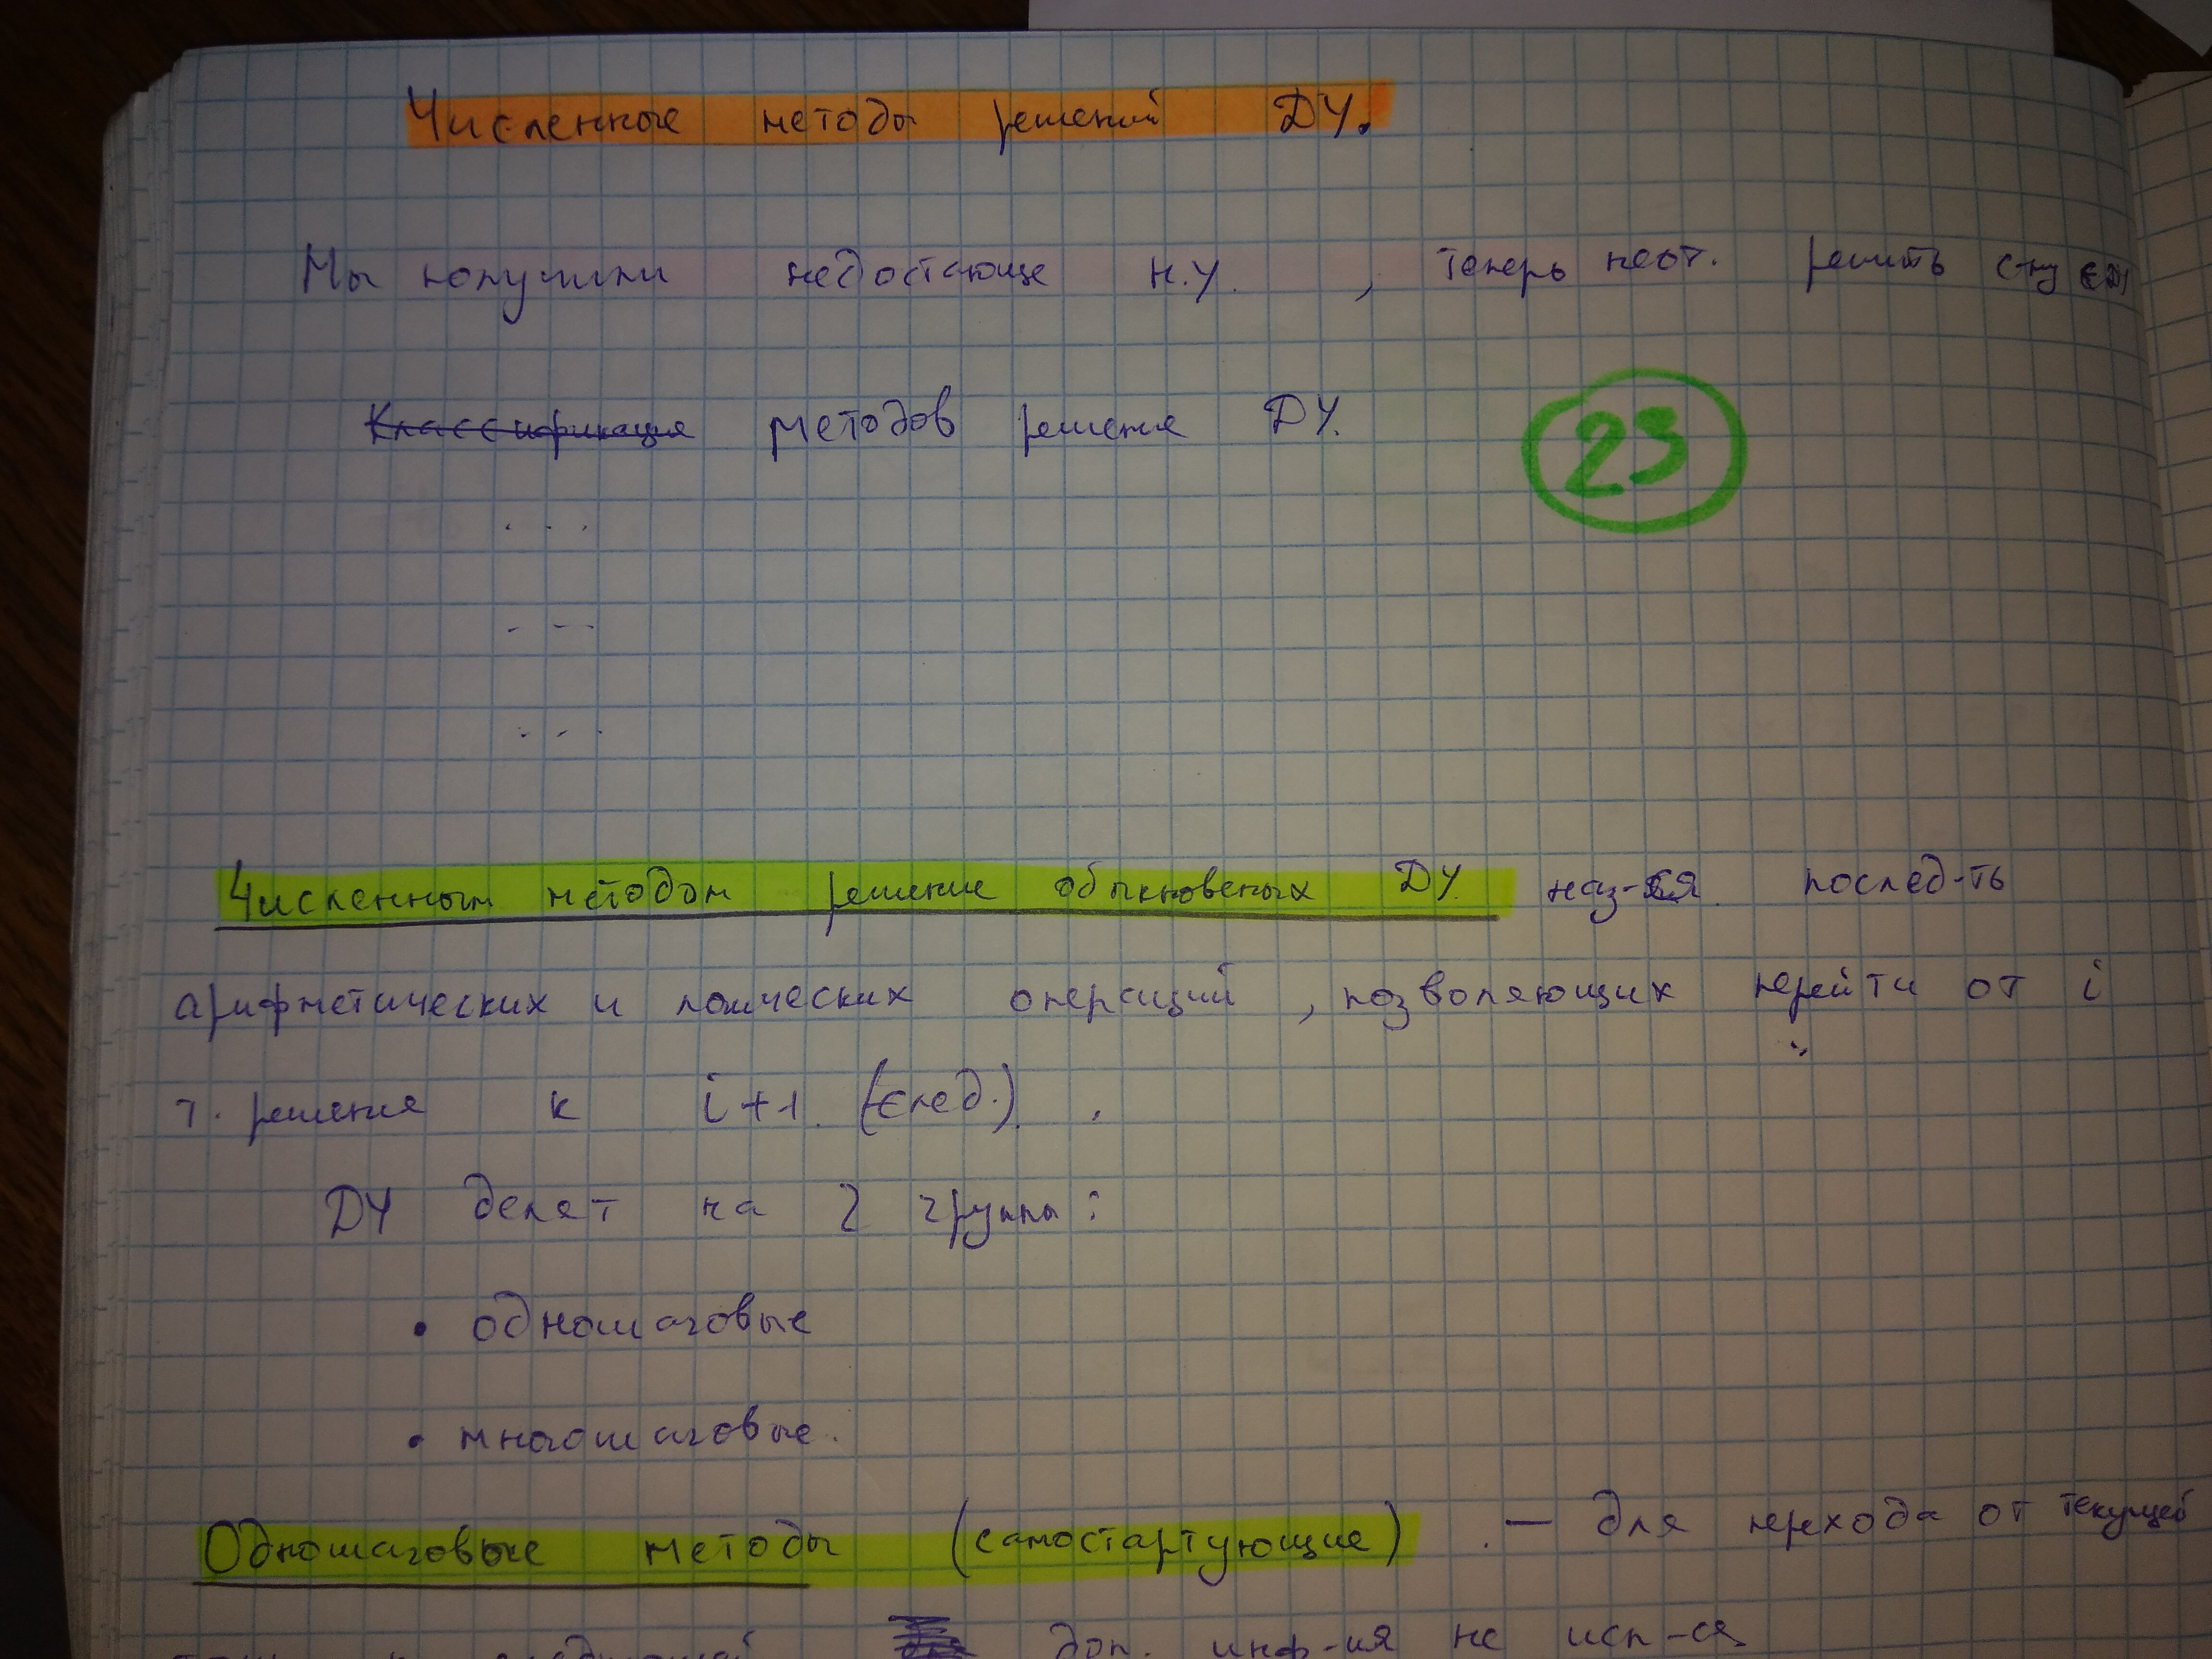 Численные методы решений ДУ.
Мы получили недостающе н.у. , теперь решить с-му
Классификация методов решения ДУ.
23
. . .
. . .
. . .
Численным методом решение обыкновеных ДУ. наз-ся послед-ть
арифметических и логических операций , позволяющих перейти от i
т. решения к i+1 (след.) .
ДУ делят на 2 группы :
• одношаговые
• многошаговые.
Одношаговые методы (самостартующие) . — для перехода от текущей
доп. инф-ия не исп-ся